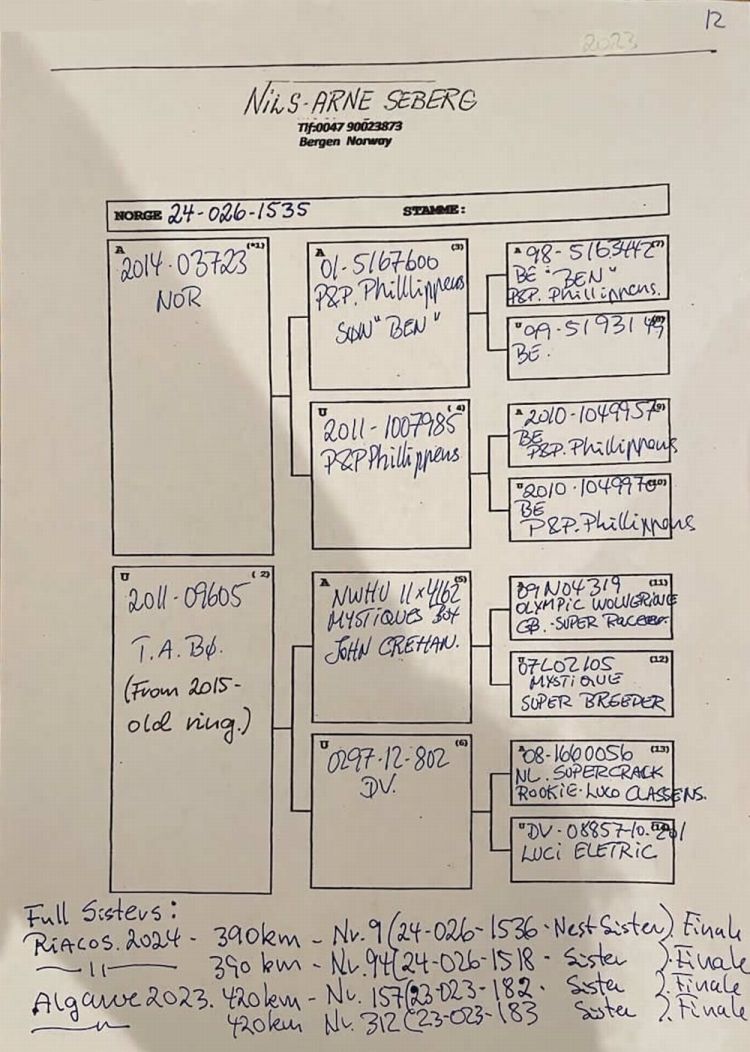 12
2023
NILS-ARNE SEBERG
Tlf:0047 90023873
Bergen Norway
NORGE 24-026-1535 STAMME:
A (*1)
2014-03723
NOR
A (3)
01-5167600
P&P. Philllippens
SØN "BEN"
A 98-5163442 (7)
BE "BEN"
P&P. Phillippens.
U 99-5193149
BE.
U (4)
2011-1007985
P&P Phillippens
A 2010-1049957 (9)
BE
P&P. Phillippens
U 2010-1049970 (10)
BE
P&P. Phillippens
U (2)
2011-09605
T.A. BØ.
(From 2015-
old ring.)
A (5)
NWHU 11x4162
MYSTIQUES BOY
JOHN CREHAN.
09N04319 (11)
OLYMPIC WOLVERINE
GB.-SUPER RACER
07L02105 (12)
MYSTIQUE
SUPER BREEDER
U (6)
0297-12-802
DV.
A 08-1660056 (13)
NL. SUPERCRACK
ROOKIE-LUXO CLASSENS.
U DV-08857-10-201
LUCI ELETRIC
Full Sisters:
RIACOS. 2024 - 390km - Nr. 9 (24-026-1536 - Nest Sister) Finale
—— 11 —— 390 km - Nr. 94 (24-026-1518 - Sister ). Finale
Algarve 2023. 420km - Nr. 157 (23-023-182. Sister ). Finale
—— " —— 420km Nr. 312 (23-023-183 Sister ). Finale